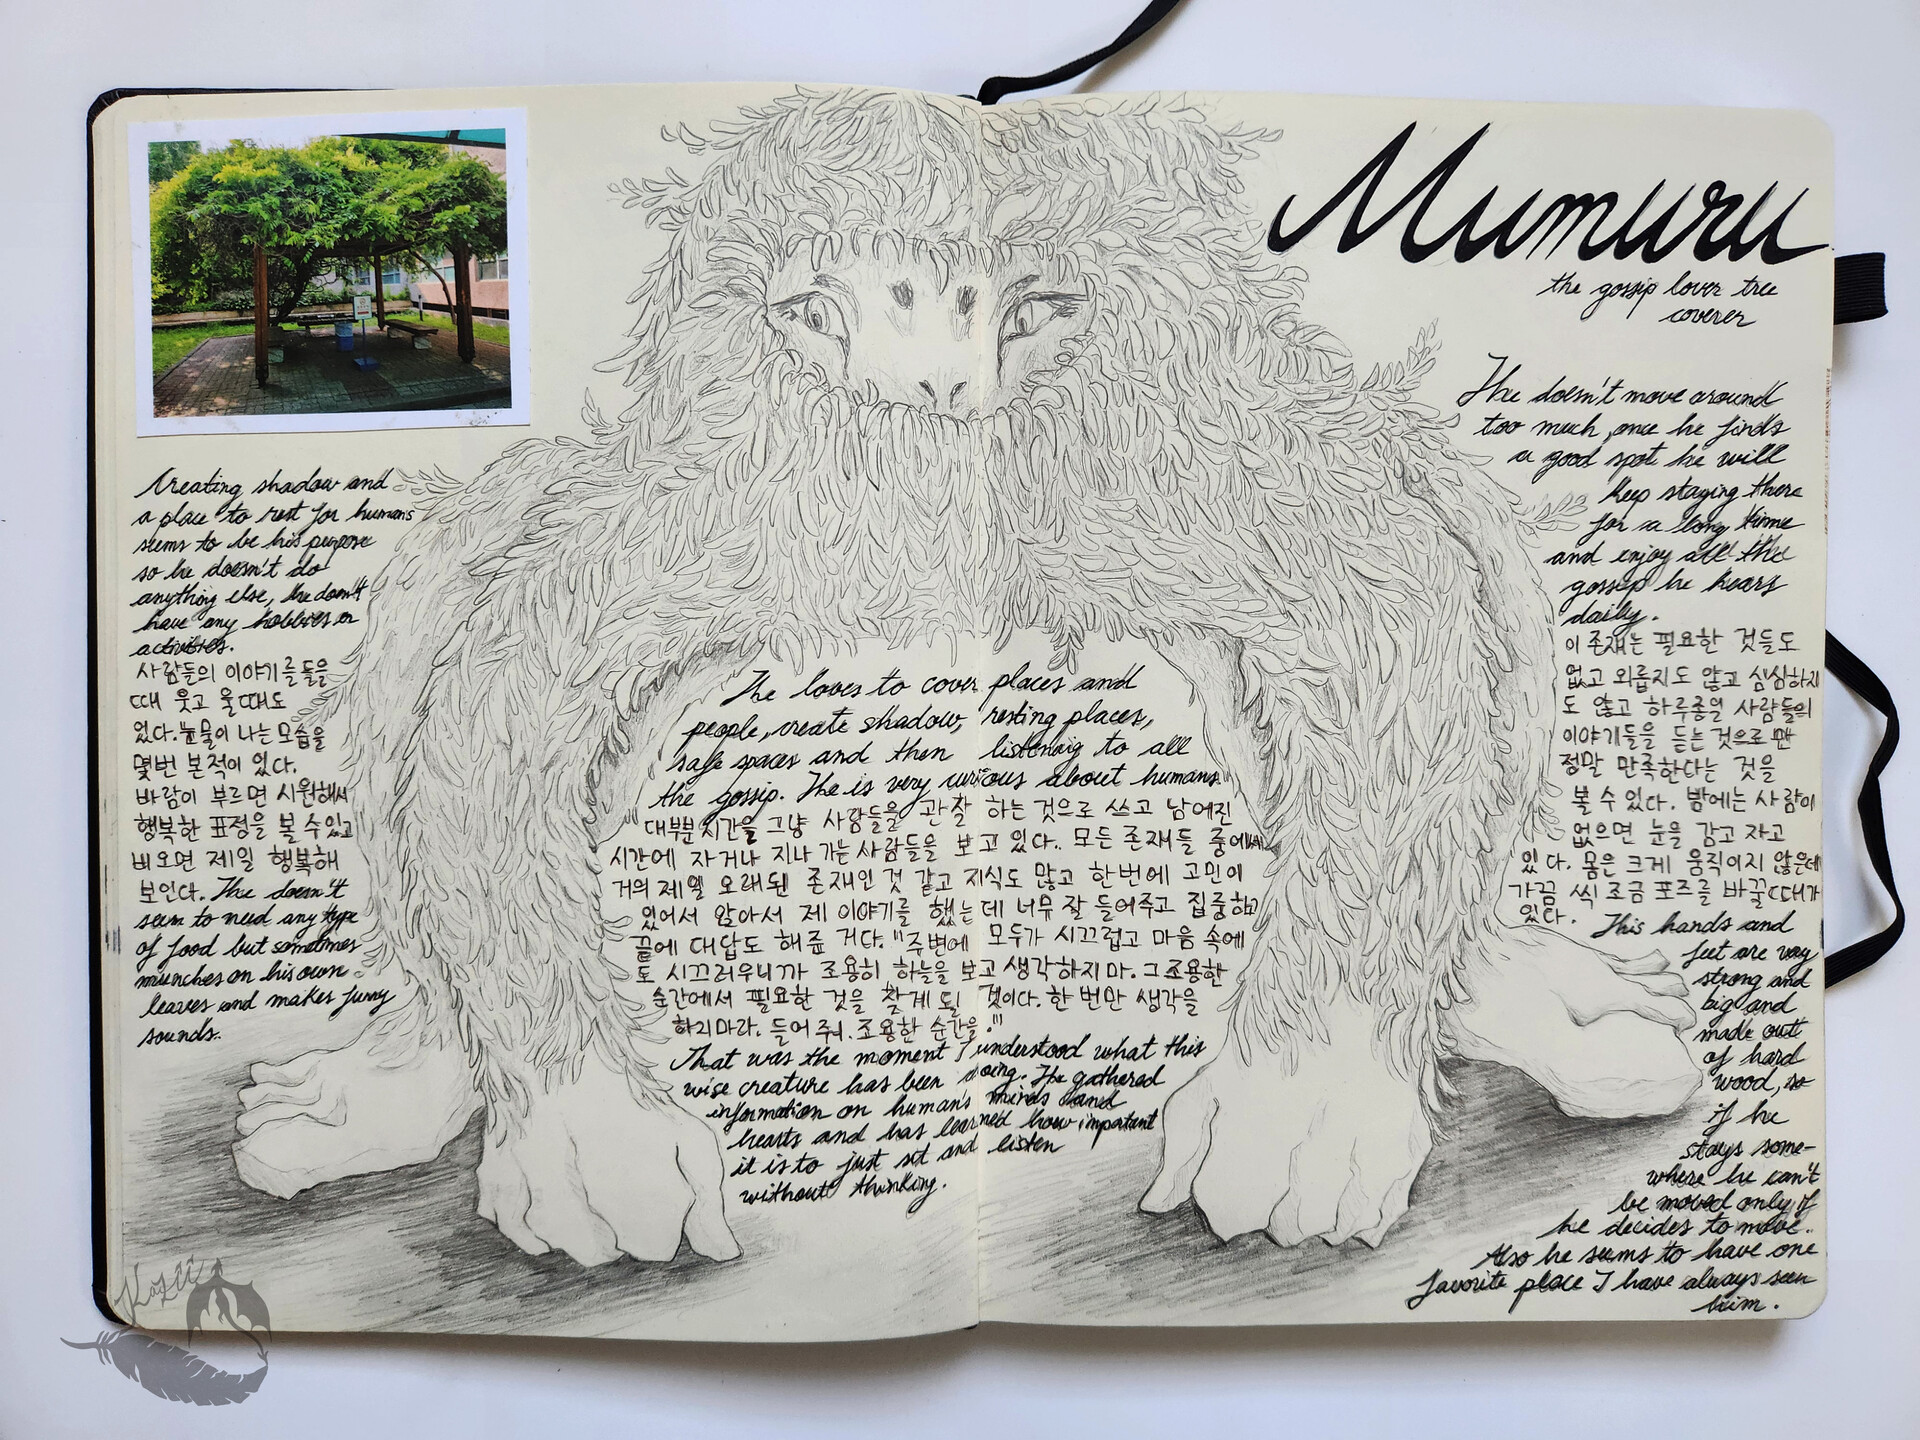 Mumuru
the gossip lover tree
coverer
Creating shadow and
a place to rest for humans
seems to be his purpose
so he doesn't do
anything else, he doesn't
have any hobbies or
activities.
사람들의 이야기를 들을
때 웃고 울때도
있다. 눈물이 나는 모습을
몇번 본적이 있다.
바람이 부르면 시원해서
행복한 표정을 볼 수 있고
비오면 제일 행복해
보인다. He doesn't
seem to need any type
of food but sometimes
munches on his own
leaves and makes funny
sounds..
He loves to cover places and
people, create shadow, resting places,
safe spaces and then listening to all
the gossip. He is very curious about humans.
대부분 시간을 그냥 사람들을 관찰 하는 것으로 쓰고 남어진
시간에 자거나 지나 가는 사람들을 보고 있다.. 모든 존재들 중에서
거의 제일 오래된 존재인 것 같고 지식도 많고 한번에 고민이
있어서 앉아서 제 이야기를 했는데 너무 잘 들어주고 집중하고
끝에 대답도 해준 거다. "주변에 모두가 시끄럽고 마음 속에
도 시끄러우니까 조용히 하늘을 보고 생각하지 마. 그 조용한
순간에서 필요한 것을 찾게 될 것이다. 한 번만 생각을
하지마라. 들어 줘. 조용한 순간을."
That was the moment I understood what this
wise creature has been doing. He gathered
information on humans minds and
hearts and has learned how important
it is to just sit and listen
without thinking.
He doesn't move around
too much, once he finds
a good spot he will
keep staying there
for a long time
and enjoy all the
gossip he hears
daily.
이 존재는 필요한 것들도
없고 외롭지도 않고 심심하지
도 않고 하루종일 사람들의
이야기들을 듣는 것으로 만
정말 만족한다는 것을
볼 수 있다. 밤에는 사람이
없으면 눈을 감고 자고
있다. 몸은 크게 움직이지 않은데
가끔 씩 조금 포즈를 바꿀때가
있다. His hands and
feet are very
strong and
big and
made out
of hard
wood, so
if he
stays some-
where he can't
be moved only if
he decides to move..
Also he seems to have one
favorite place I have always seen
him.
Kazu